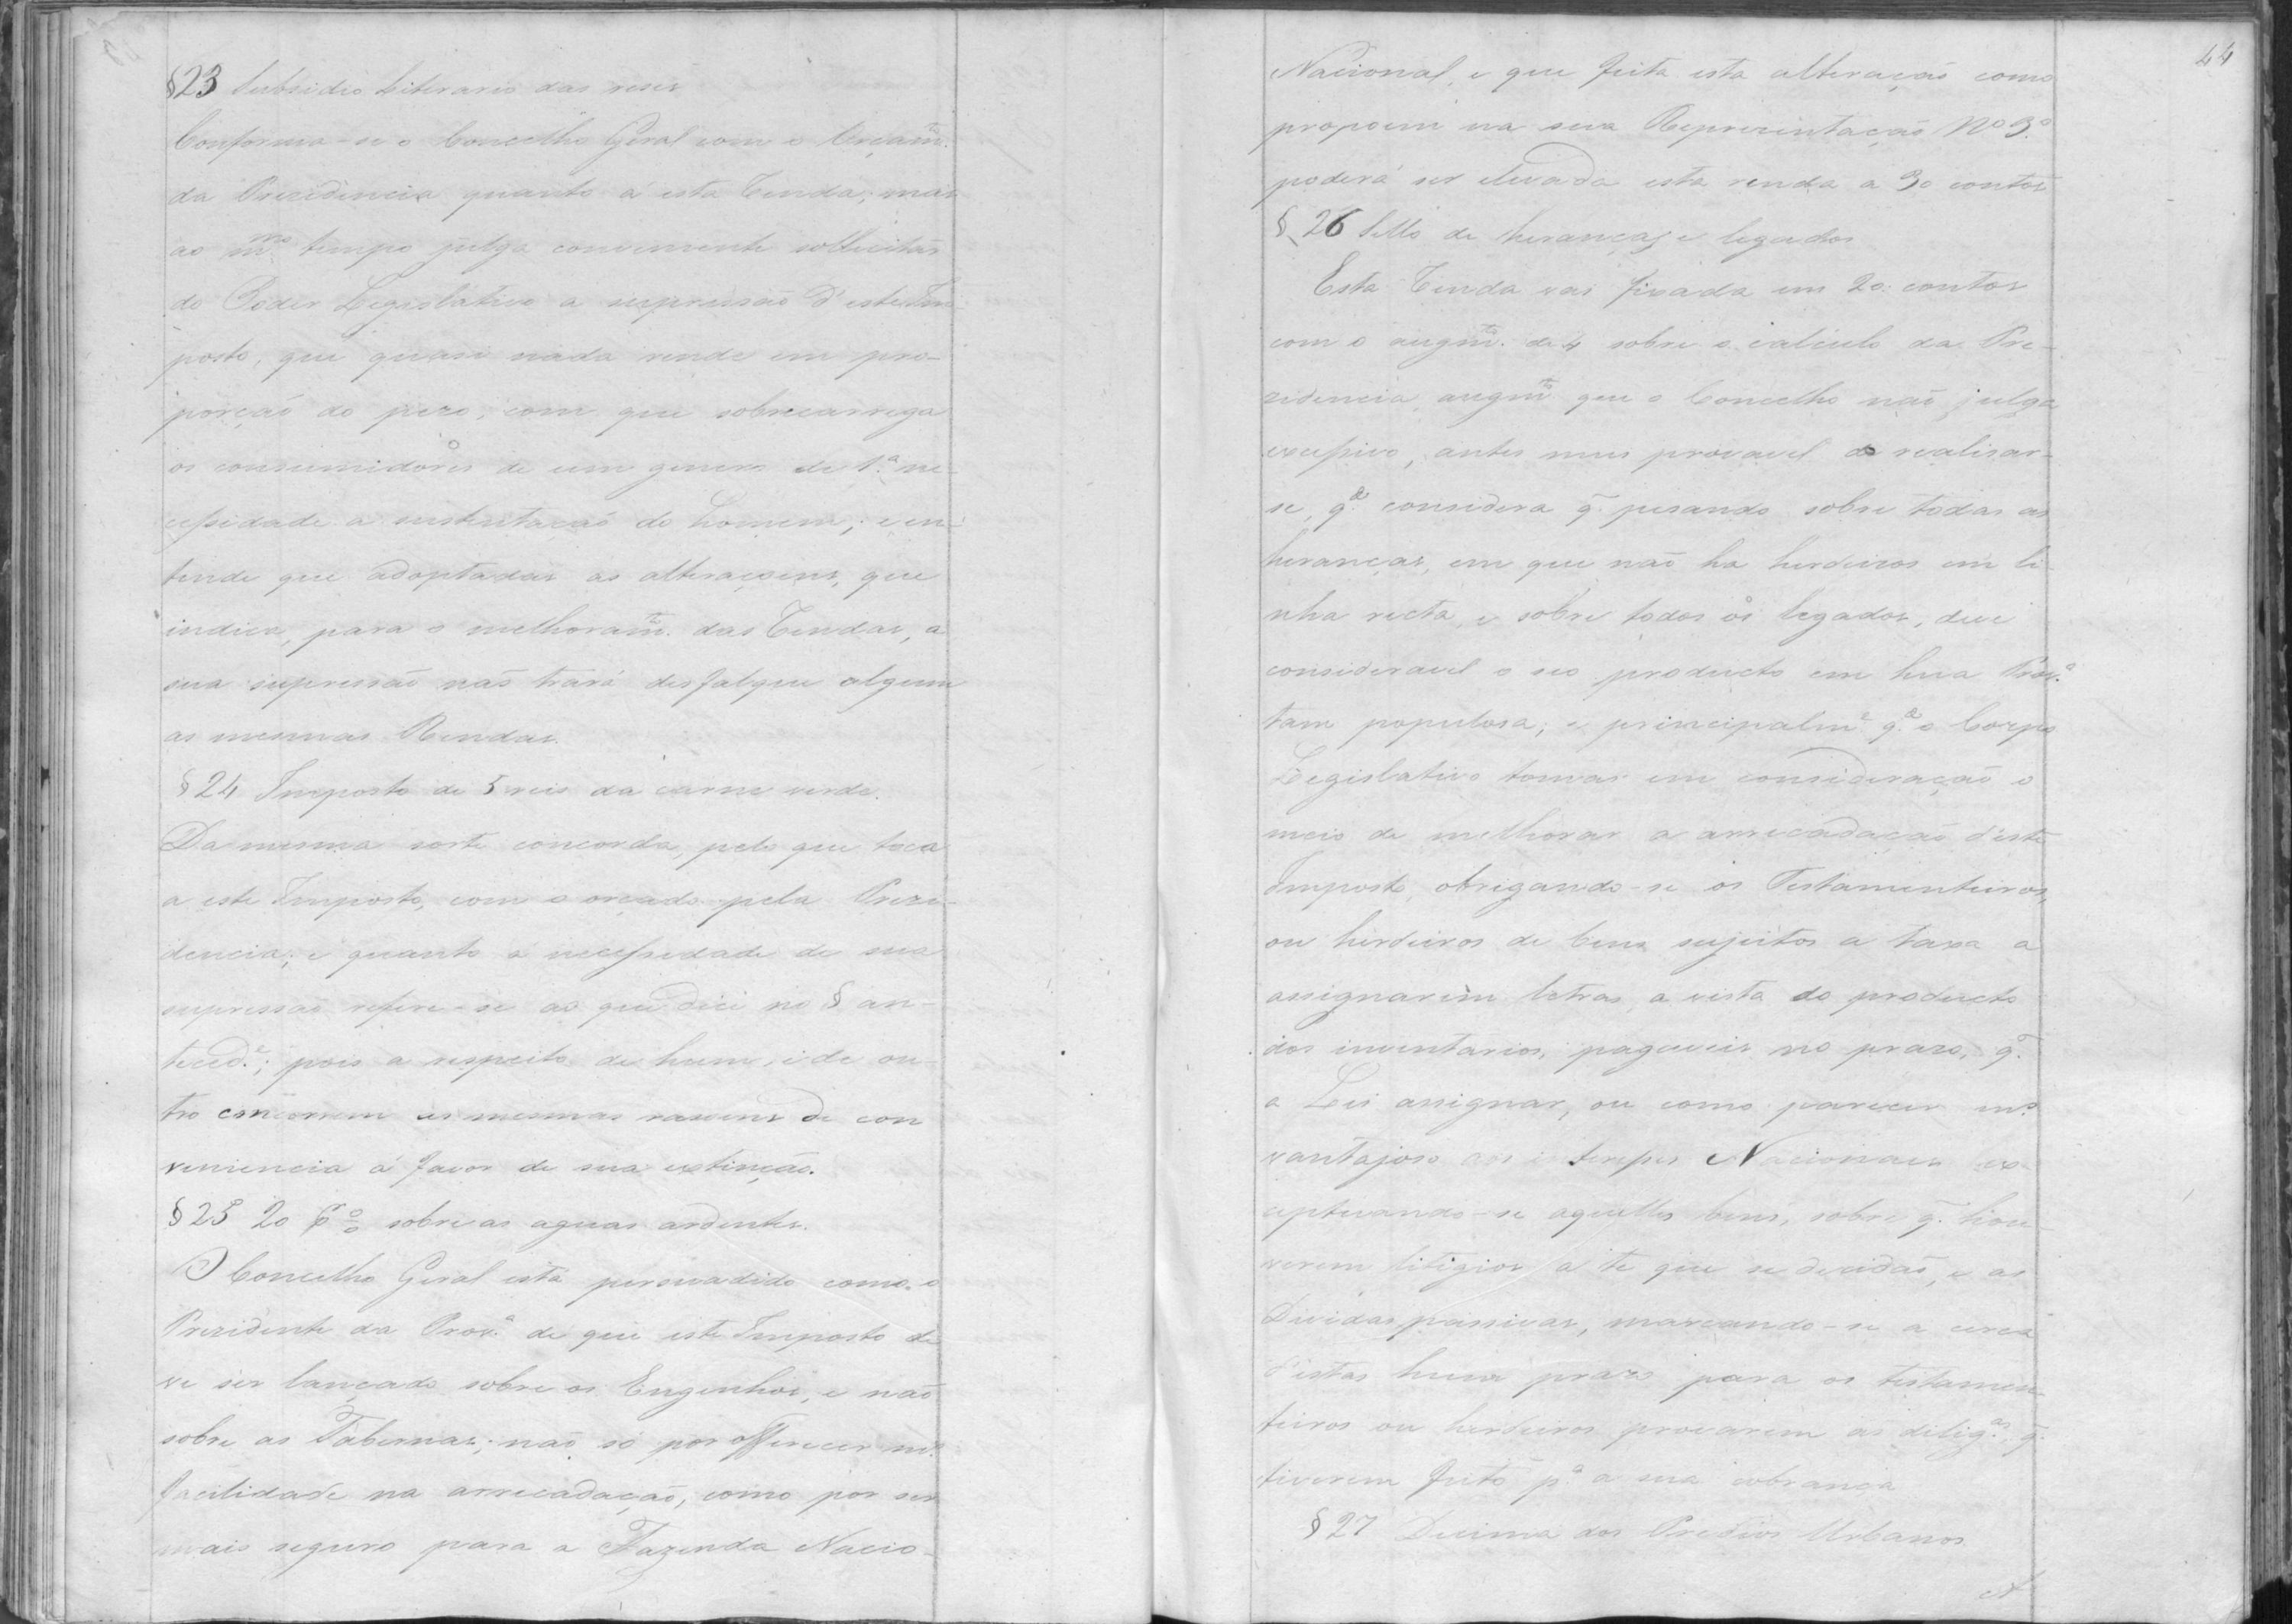 §23 Subsidio Literario das reses
Conforma-se o Concelho Geral com o Orçam.to
da Prezidencia quanto á esta Renda; mas
ao m.mo tempo julga conveniente sollicitar
do Poder Legislativo a supressão d'este Im-
posto, que quasi nada rende em pro-
porção do pezo, com que sobrecarrega
os consumidores de um genero de 1.a ne-
cessidade a sustentação do homem; e en-
tende que adoptadas as alteraçoens, que
indica, para o melhoram.to das Rendas, a
sua supressão não trará desfalque algum
as mesmas Rendas.
§24 Imposto de 5 reis da carne verde.
Da mesma sorte concorda, pelo que toca
a este Imposto, com o orçado pela Prezi-
dencia; e quanto a necessidade de sua
supressão refere-se ao que dice no § an-
teced.e; pois a respeito de hum, e de ou-
tro concorrem as mesmas rasoens de con
veniencia á favor de sua extinção.
§25 20 p%o sobre as aguas ardentes.
O Concelho Geral está persuadido como o
Prezidente da Prov.a de que este Imposto de
ve ser lançado sobre os Engenhos, e não
sobre as Tabernas; não só por offerecer m.s
facilidade na arrecadação, como por ser
mais seguro para a Fazenda Nacio-
44
Nacional, e que feita esta alteração como
propoem na sua Reprezentação No 3.o
poderá ser elevada esta renda a 30 contos
§ 26 Sello de heranças e legados
Esta Renda vai fixada em 20 contos
com o augm.to de 4 sobre o calculo da Pre-
zidencia, augm.to que o Concelho não julga
excessivo, antes mui provavel de realisar-
se, q.do considera q. pesando sobre todas as
heranças, em que não ha herdeiros em li-
nha recta, e sobre todos os legados, deve
consideravel o seo producto em hua Prov.a
tam populosa; e principalm.e q.do o Corpo
Legislativo tomar em consideração o
meio de melhorar a arrecadação d'este
Imposto, obrigando-se os Testamenteiros,
ou herdeiros de bens sujeitos a taxa a
assignarem letras, a vista do producto
dos inventarios, pagaveis no praso, q.
a Lei assignar, ou como parecer m.s
vantajoso aos interesses Nacionaes ex-
ceptuando-se aquelles bens, sobre q. hou-
verem litigios a te que se decidão, e as
Dividas passivas, marcando-se a cerca
d'estas hum praso para os testamen-
teiros ou herdeiros provarem as dilig.as q.
tiverem feito p.a a sua cobrança
§27 Decima dos Predios Urbanos
A